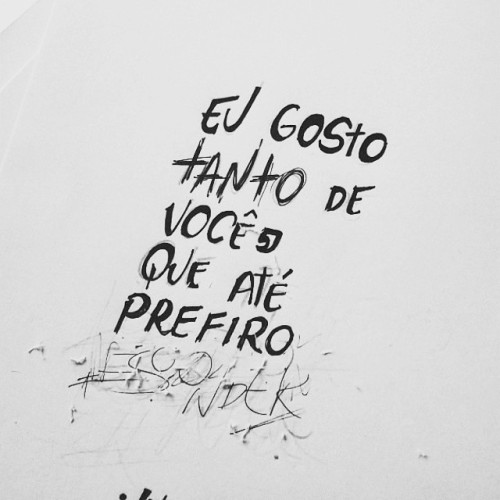 EU GOSTO
TANTO DE
VOCÊ,
QUE ATÉ
PREFIRO
ESCO
NDER